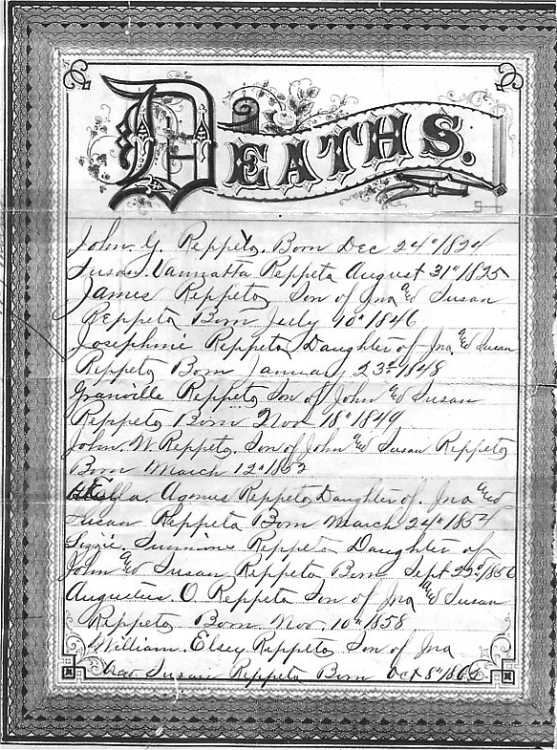 DEATHS.
John. G. Reppeto. Born Dec 24th 1824
Susan. Vannatta Reppeto August 31st 1825
James Reppeto Son of Jno and Susan
Reppeto Born July 10th 1846
Josephine Reppeto Daughter of Jno and Susan
Reppeto Born January 23d 1848
Granville Reppeto Son of John and Susan
Reppeto Born Nov 18th 1849
John. W. Reppeto. Son of John and Susan Reppeto
Born March 12th 1852
Agnnes Reppeto Daughter of. Jno and
Susan Reppeto Born March 24th 1854
Lizzie. Reppeto Daughter of
John and Susan Reppeto Born Sept 22d 1856
Augustus. O. Reppeto Son of Jno and Susan
Reppeto Born. Nov. 10th 1858
William. Elsey Reppeto Son of Jno
Susan Reppeto Born Oct 8th